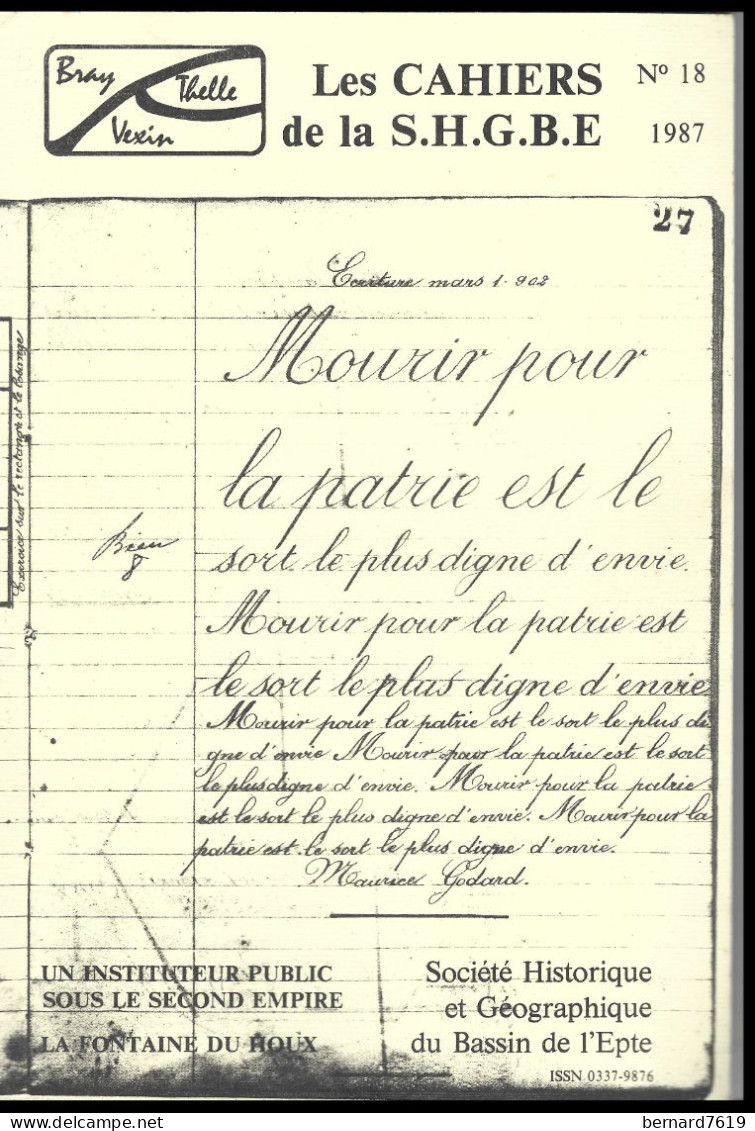 Bray
Thelle
Vexin
Les CAHIERS
de la S.H.G.B.E
N° 18
1987
27
Ecriture mars 1.902
Mourir pour
la patrie est le
sort le plus digne d'envie.
Mourir pour la patrie est
le sort le plus digne d'envie
Mourir pour la patrie est le sort le plus di
gne d'envie Mourir pour la patrie est le sort
le plus digne d'envie. Mourir pour la patrie
est le sort le plus digne d'envie. Mourir pour la
patrie est le sort le plus digne d'envie.
Maurice Godard.
Exercice sur le rectangle et le losange
Bien
8
UN INSTITUTEUR PUBLIC
SOUS LE SECOND EMPIRE
LA FONTAINE DU HOUX
Société Historique
et Géographique
du Bassin de l'Epte
ISSN 0337-9876
bernard7619